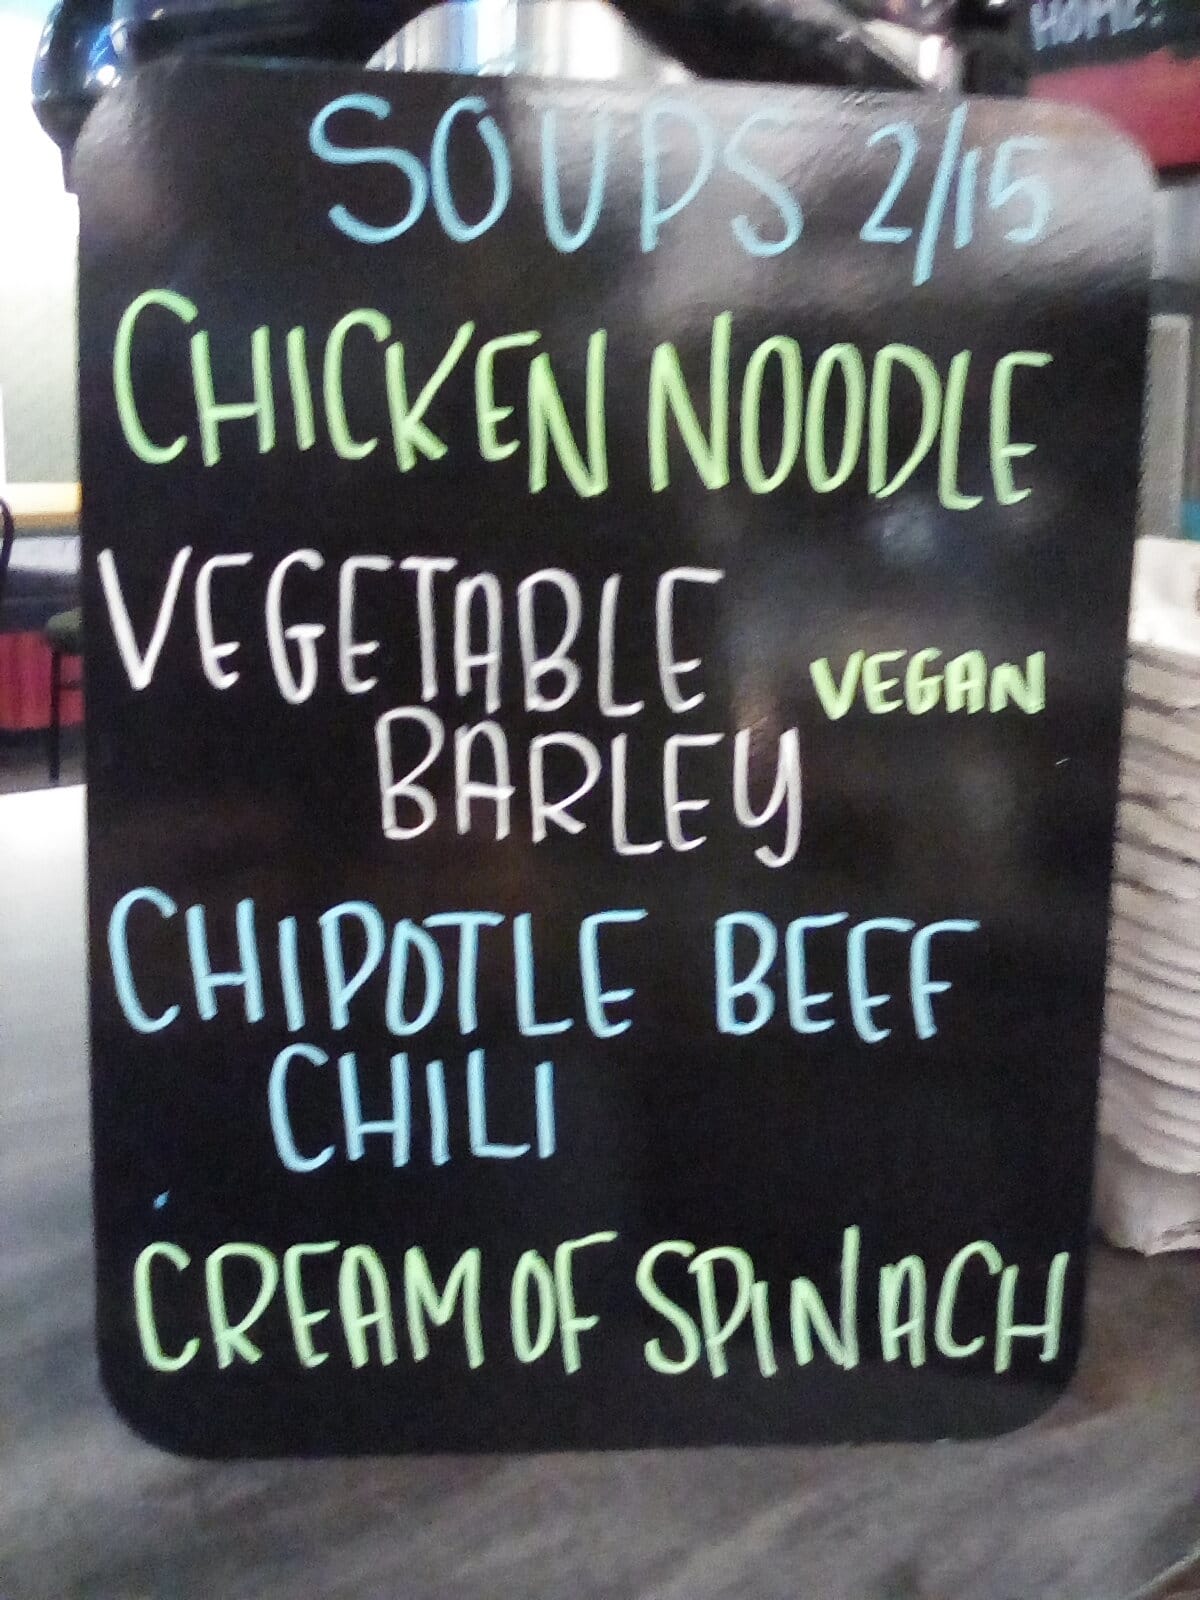 HOME:
SOUPS 2/15
CHICKEN NOODLE
VEGETABLE
VEGAN
BARLEY
CHIPOTLE BEEF
CHILI
CREAM OF SPINACH